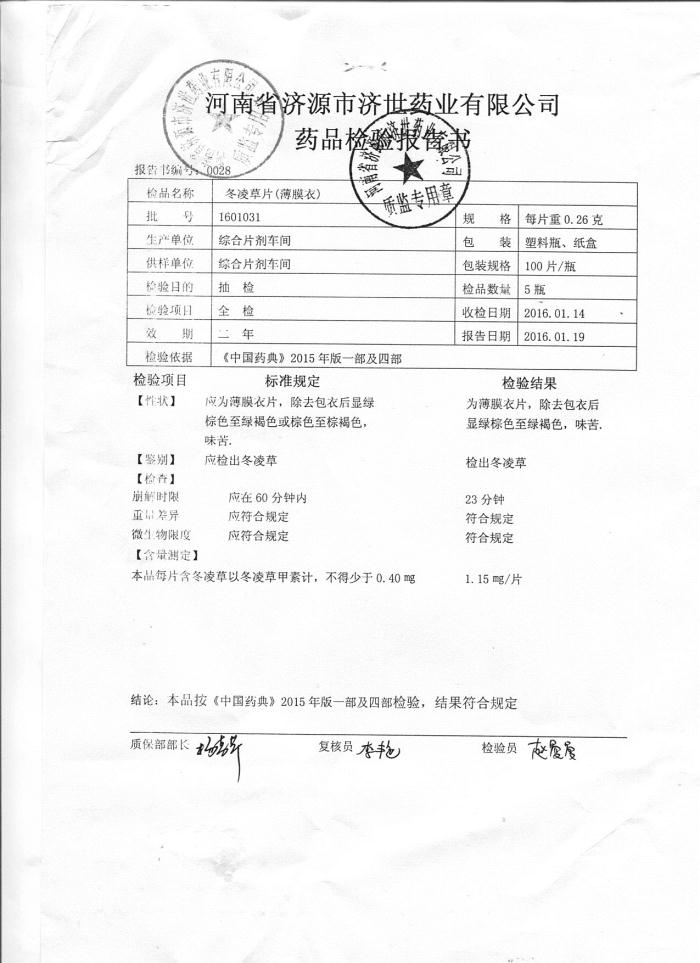 河南省济源市济世药业有限公司
药品检验报告书
河南省济源市济世药业有限公司
质监专用章
报告书编号: 0028
检品名称 冬凌草片(薄膜衣)
批 号 1601031 规 格 每片重 0.26 克
生产单位 综合片剂车间 包 装 塑料瓶、纸盒
供样单位 综合片剂车间 包装规格 100 片/瓶
检验目的 抽 检 检品数量 5 瓶
检验项目 全 检 收检日期 2016.01.14
效 期 二 年 报告日期 2016.01.19
检验依据 《中国药典》2015 年版一部及四部
检验项目 标准规定 检验结果
【性状】 应为薄膜衣片，除去包衣后显绿 为薄膜衣片，除去包衣后
棕色至绿褐色或棕色至棕褐色， 显绿棕色至绿褐色，味苦.
味苦.
【鉴别】 应检出冬凌草 检出冬凌草
【检查】
崩解时限 应在 60 分钟内 23 分钟
重量差异 应符合规定 符合规定
微生物限度 应符合规定 符合规定
【含量测定】
本品每片含冬凌草以冬凌草甲素计，不得少于 0.40 mg 1.15 mg/片
结论：本品按《中国药典》2015 年版一部及四部检验，结果符合规定
质保部部长 复核员 李艳 检验员